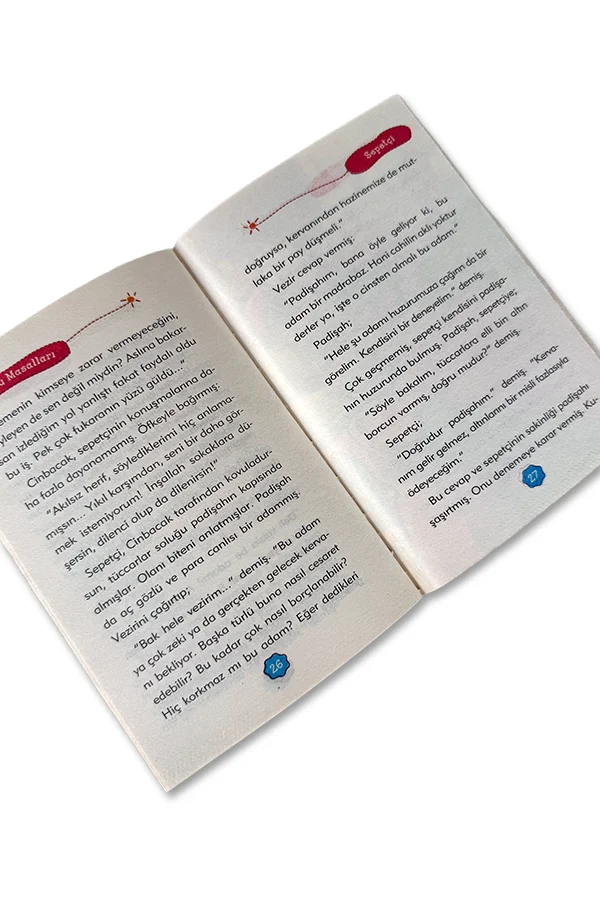 Masalları
emenin kimseye zarar vermeyeceğini,
yleyen de sen değil miydin? Aslına bakar-
san izlediğim yol yanlıştı fakat faydalı oldu
bu iş. Pek çok fukaranın yüzü güldü...”
Cinbacak, sepetçinin konuşmalarına da-
ha fazla dayanamamış. Öfkeyle bağırmış:
“Akılsız herif, söylediklerimi hiç anlama-
mışsın... Yıkıl karşımdan, seni bir daha gör-
mek istemiyorum! İnşallah sokaklara dü-
şersin, dilenci olup da dilenirsin!”
Sepetçi, Cinbacak tarafından kovuladur-
sun, tüccarlar soluğu padişahın kapısında
almışlar. Olanı biteni anlatmışlar. Padişah
da aç gözlü ve para canlısı bir adammış.
Vezirini çağırtıp;
“Bak hele vezirim...” demiş. “Bu adam
ya çok zeki ya da gerçekten gelecek kerva-
nı bekliyor. Başka türlü buna nasıl cesaret
edebilir? Bu kadar çok nasıl borçlanabilir?
Hiç korkmaz mı bu adam? Eğer dedikleri
26
Sepetçi
doğruysa, kervanından hazinemize de mut-
laka bir pay düşmeli.”
Vezir cevap vermiş:
“Padişahım, bana öyle geliyor ki, bu
adam bir madrabaz. Hani cahilin aklı yoktur
derler ya, işte o cinsten olmalı bu adam.”
Padişah;
“Hele şu adamı huzurumuza çağırın da bir
görelim. Kendisini bir deneyelim.” demiş.
Çok geçmemiş, sepetçi kendisini padişa-
hın huzurunda bulmuş. Padişah, sepetçiye;
“Söyle bakalım, tüccarlara elli bin altın
borcun varmış, doğru mudur?” demiş.
Sepetçi;
“Doğrudur padişahım.” demiş. “Kerva-
nım gelir gelmez, altınlarını bir misli fazlasıyla
ödeyeceğim.”
Bu cevap ve sepetçinin sakinliği padişahı
şaşırtmış. Onu denemeye karar vermiş. Ku-
27